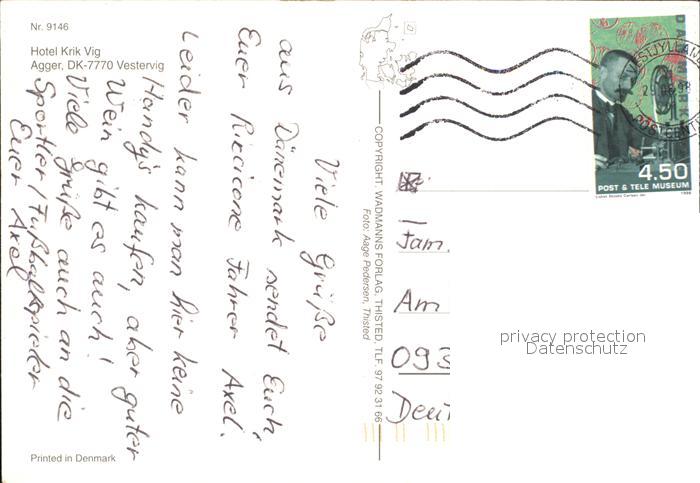 Nr. 9146
Hotel Krik Vig
Agger, DK-7770 Vestervig
Viele Grüße
aus Dänemark sendet Euch
Euer Riccione Fahrer Axel.
Leider kann man hier keine
Handys kaufen, aber guter
Wein gibt es auch!
Viele Grüße auch an die
Sportler/Fußballspieler
Euer Axel
Printed in Denmark
COPYRIGHT, WADMANNS FORLAG, THISTED, TLF. 97 92 31 66
Foto: Aage Pedersen, Thisted
DANMARK
4.50
POST & TELE MUSEUM
1998
Fam.
Am
093
Deu
privacy protection
Datenschutz